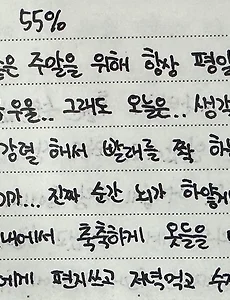 55%
은 주말을 위해 항상 평일
우울.. 그래도 오늘은... 생각
강렬 해서 빨래를 쫙 하
가... 진짜 순간 뇌가 하얗게
내에서 축축하게 옷들을
에게 편지쓰고 저녁먹고 수